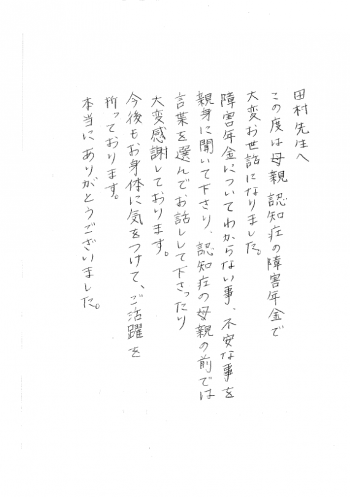 田村先生へ
この度は母親 認知症の障害年金で
大変お世話になりました。
障害年金についてわからない事、不安な事を
親身に聞いて下さり、認知症の母親の前では
言葉を選んでお話しして下さったり
大変感謝しております。
今後もお身体に気をつけて、ご活躍を
祈っております。
本当にありがとうございました。